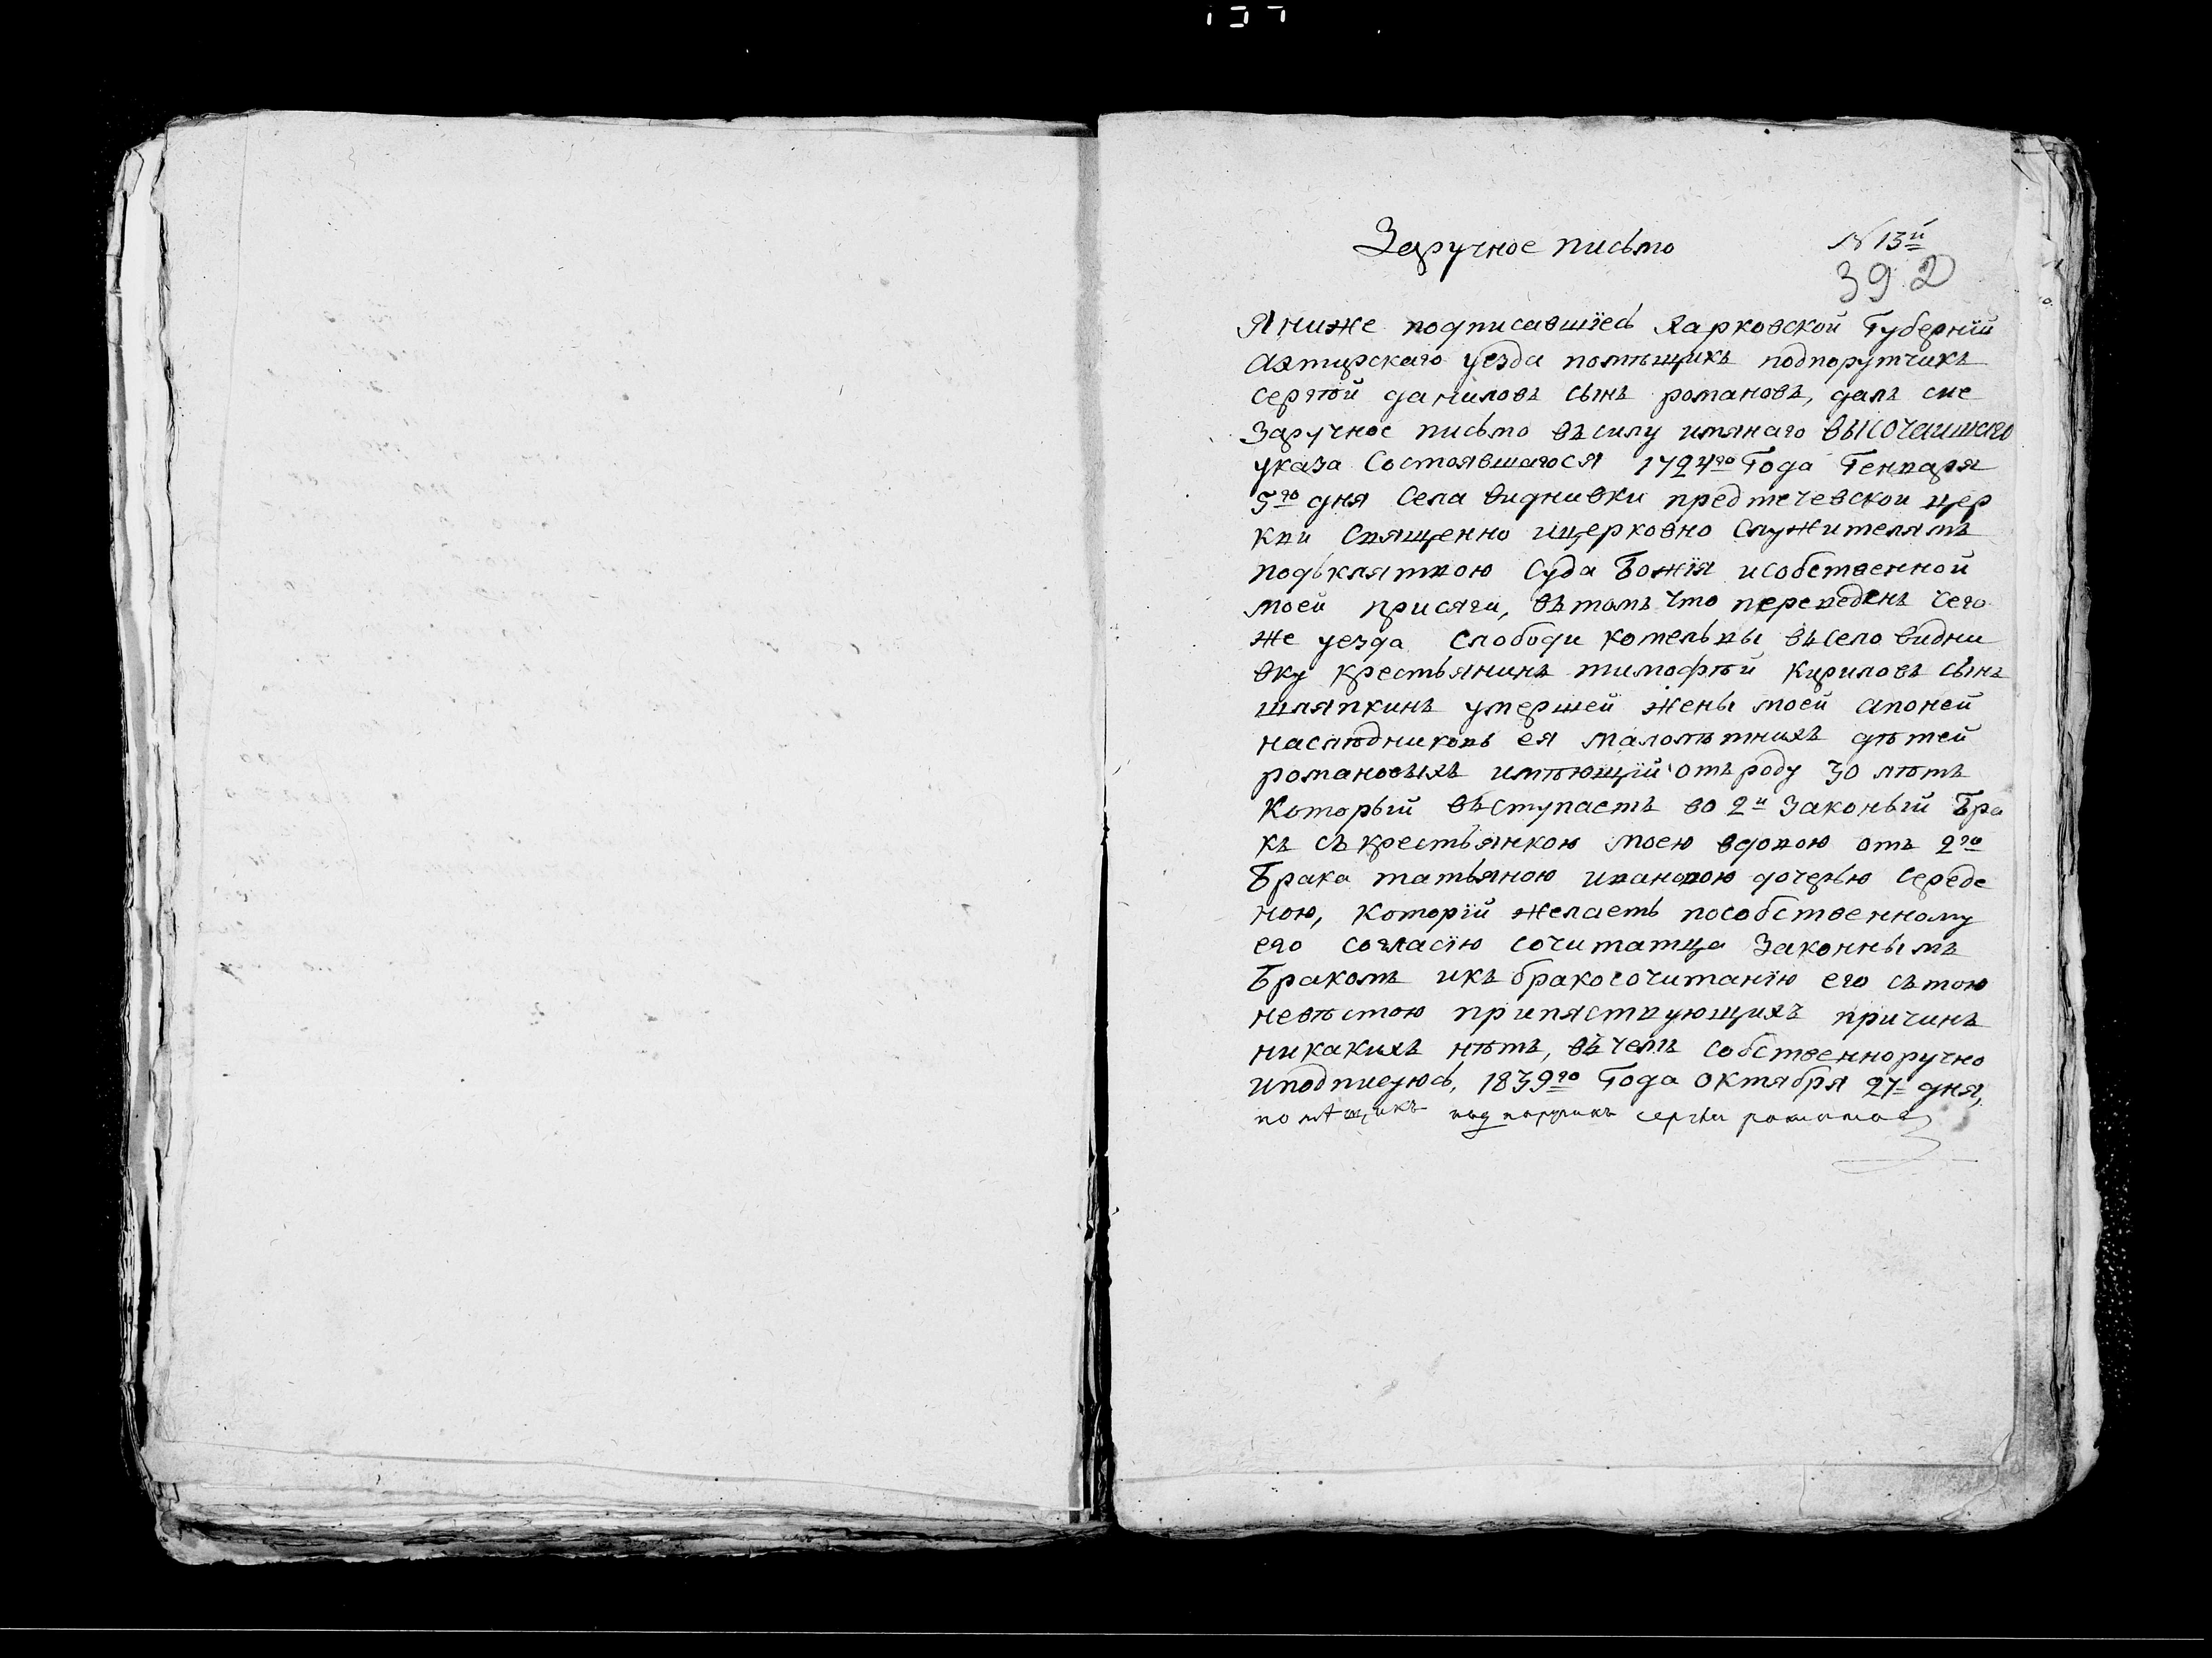 Заручное письмо
N 13й
392
Я ниже подписавшїесь харковской Губернїй
ахтирскаго уезда помѣщикъ подпорутчикъ
сергѣй даниловъ сынъ романовъ, далъ сие
Заручное письмо въсилу имянаго высочаишаго
указа Состоявшагося 1724го Года Генваря
5го дня Села видниевки предтечевскои цер
кви Священно ицерковно Служителямъ
подьклятвою Суда Божїя исобственной
моей присяги, вътомъ что переведенъ сего
же уезда Слободи котельвы въсело видни
вку крестьянинъ тимофѣй Кириловъ сынъ
шляпкинъ умершей жены моей апоней
наслѣдниковъ ея малолѣтнихъ дѣтей
романовыхъ имѣющїй отъроду 30 лѣтъ
Который въступаетъ во 2й Законый Бра
къ съкрестьянкою моею вдовою отъ 2го
Брака татьяною ивановою дочерью Середе
ною, которїй желаетъ пособственному
его согласїю сочитатца Законнымъ
Бракомъ икъ бракосочитанїю его сътою
невѣстою припяствующихъ причинъ
никакихъ нѣтъ, въчемъ собственноручно
иподписуюсь, 1839го Года октября 27 дня,
помѣщикъ подпорутчикъ сергѣи романовъ